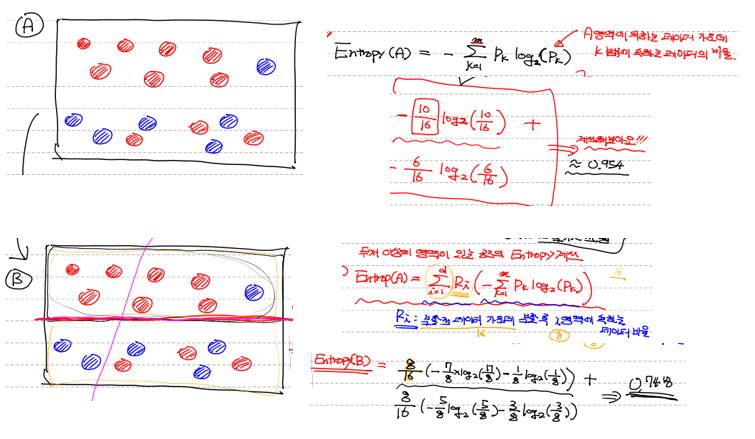 A
Entropy(A) = - Σ_{k=1}^{m} Pk log2(Pk)
A영역에 속하는 데이터 가운데
k 범주에 속하는 데이터의 비율.
- 10/16 log2(10/16) +
- 6/16 log2(6/16)
계산해보아요!!!
≈ 0.954
B
두개 이상의 영역이 있는 경우의 Entropy 계산
Entrop(A) = Σ_{i=1}^{d} Ri(- Σ_{k=1}^{m} Pk log2(Pk))
Ri: 분할전 데이터 가운데 분할 후 i영역에 속하는
데이터 비율
Entrop(B) = 8/16 (-7/8×log2(7/8) - 1/8 log2(1/8)) +
8/16 (-5/8 log2(5/8) - 3/8 log2(3/8))
⇒ 0.748